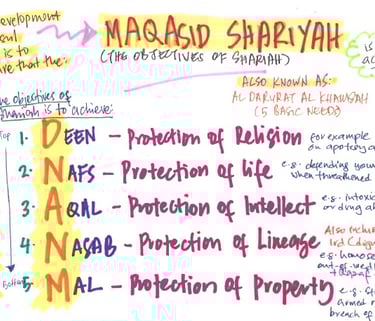 development
is to
that the:
MAQASID SHARIYAH
(THE OBJECTIVES OF SHARIAH)
is
ALSO KNOWN AS:
AL DARURAT AL KHAMSAH
(5 BASIC NEEDS)
objectives of
is to achieve:
Top
1. DEEN – Protection of Religion
for example
on apostasy
2. NAFS – Protection of life
e.g. defending your
when threathened
3. AQAL – Protection of Intellect
e.g. intoxic
or drug a
4. NASAB – Protection of Lineage
Also
e.g. homose
Bottom
5. MAL – Protection of Property
e.g. St
armed r
breach of